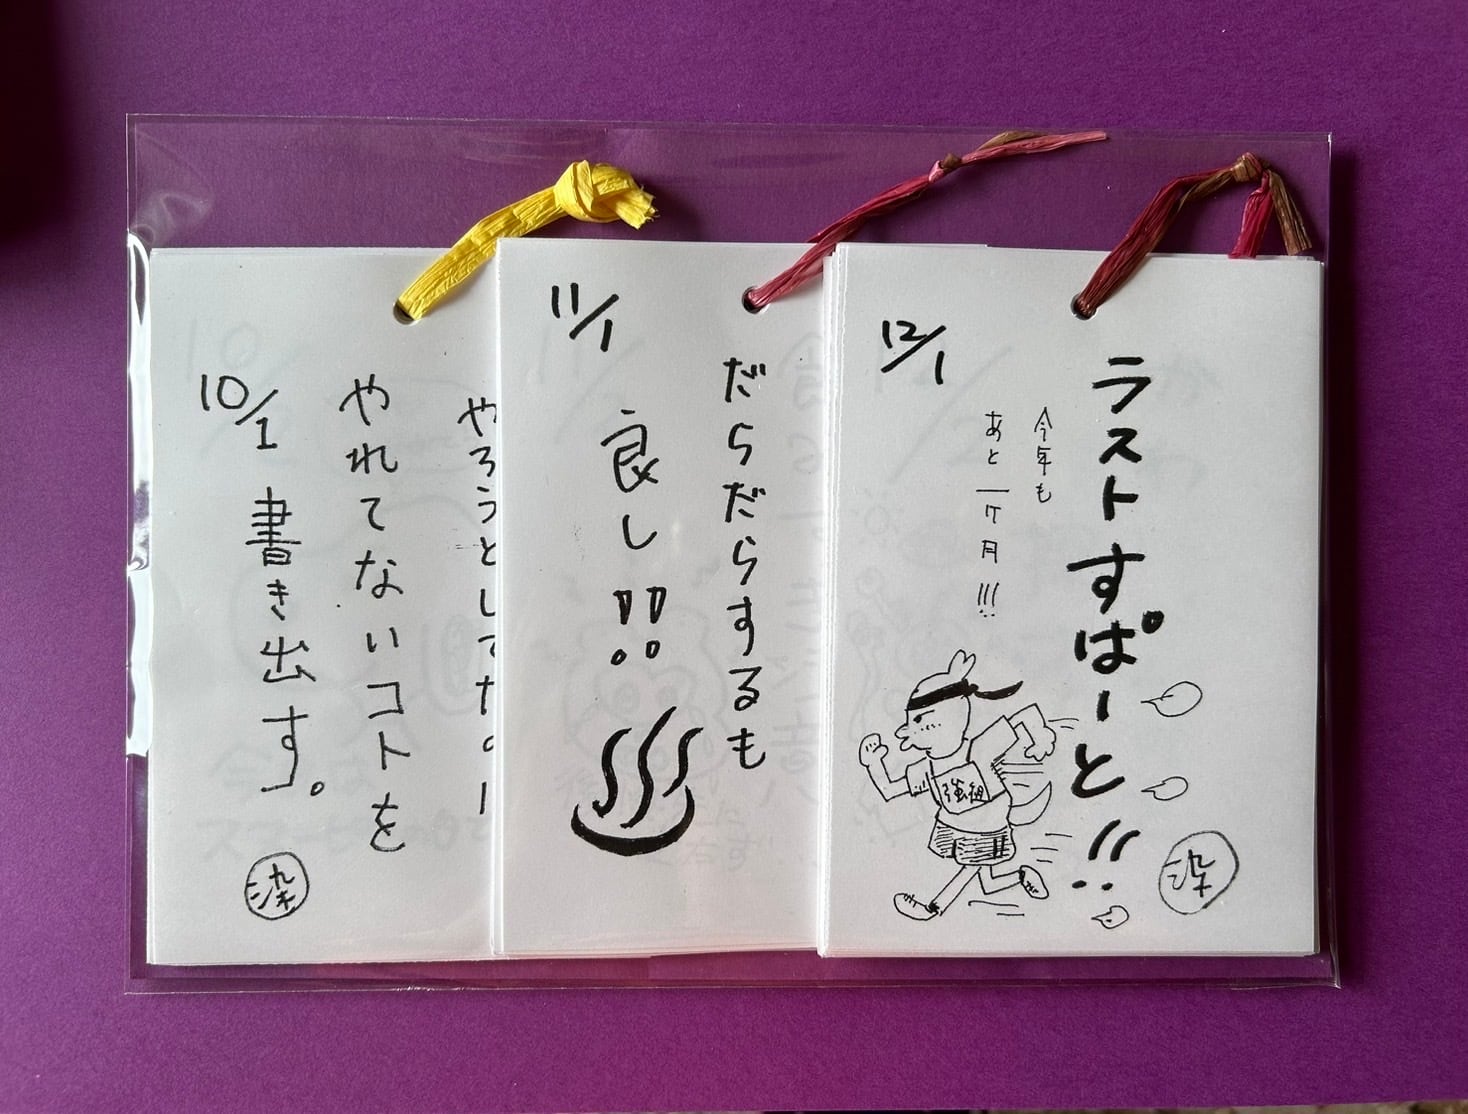 10/1
やろうとしてたのー
やれてないコトを
書き出す。
染
11/1
だらだらするも
良し!!
12/1
ラストすぱーと!!
今年も
あと一ヶ月!!!
強組
染